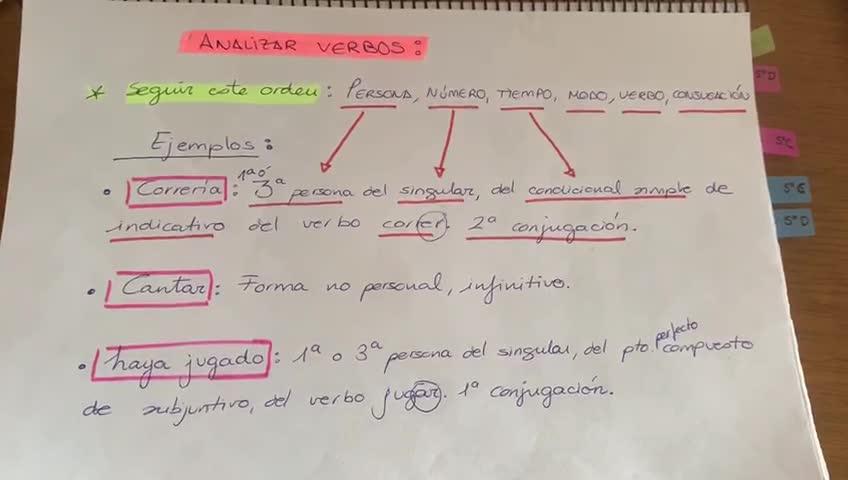 ANALIZAR VERBOS:
* Seguir este orden: PERSONA, NÚMERO, TIEMPO, MODO, VERBO, CONJUGACIÓN
Ejemplos:
1ª ó
• Correría: 3ª persona del singular, del condicional simple de
indicativo del verbo correr. 2ª conjugación.
• Cantar: Forma no personal, infinitivo.
perfecto
• haya jugado: 1ª o 3ª persona del singular, del pto. compuesto
de subjuntivo, del verbo jugar. 1ª conjugación.
5ºD
5ºC
5ºE
5ºD